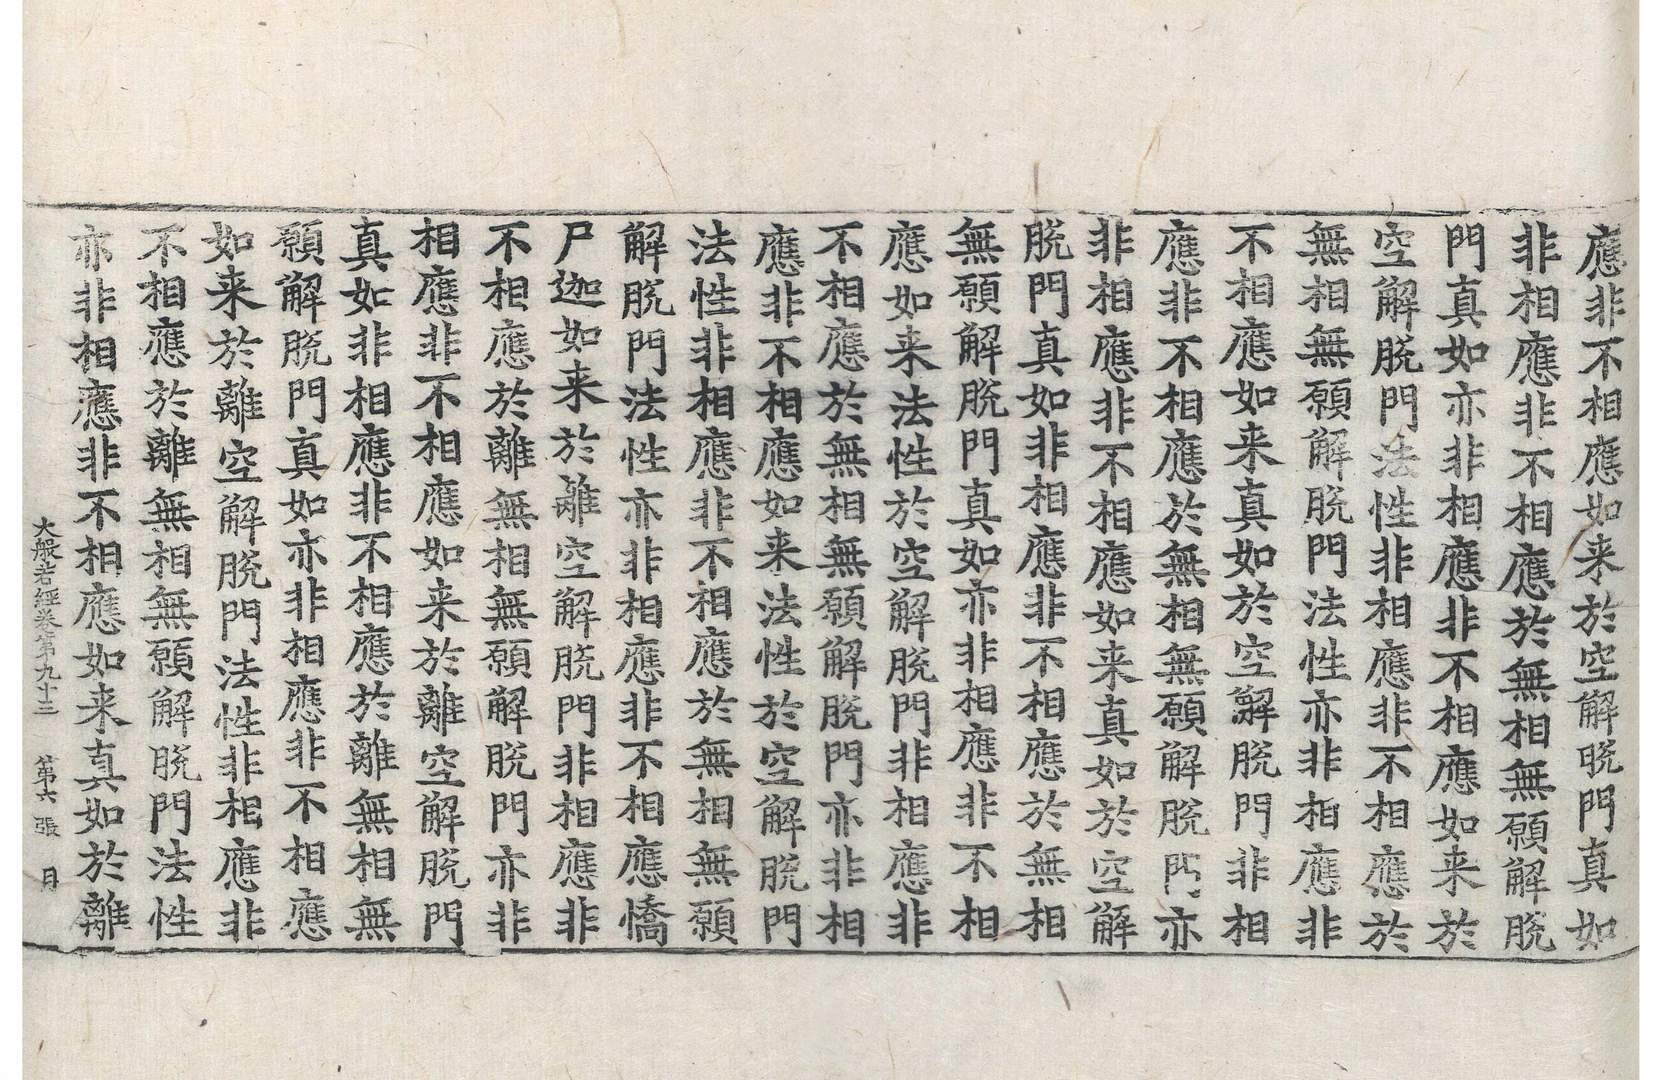 應非不相應如来於空解脫門真如
非相應非不相應於無相無願解脫
門真如亦非相應非不相應如来於
空解脫門法性非相應非不相應於
無相無願解脫門法性亦非相應非
不相應如来真如於空解脫門非相
應非不相應於無相無願解脫門亦
非相應非不相應如来真如於空解
脫門真如非相應非不相應於無相
無願解脫門真如亦非相應非不相
應如来法性於空解脫門非相應非
不相應於無相無願解脫門亦非相
應非不相應如来法性於空解脫門
法性非相應非不相應於無相無願
解脫門法性亦非相應非不相應憍
尸迦如来於離空解脫門非相應非
不相應於離無相無願解脫門亦非
相應非不相應如来於離空解脫門
真如非相應非不相應於離無相無
願解脫門真如亦非相應非不相應
如来於離空解脫門法性非相應非
不相應於離無相無願解脫門法性
亦非相應非不相應如来真如於離
大般若經卷第九十三 第六張 月